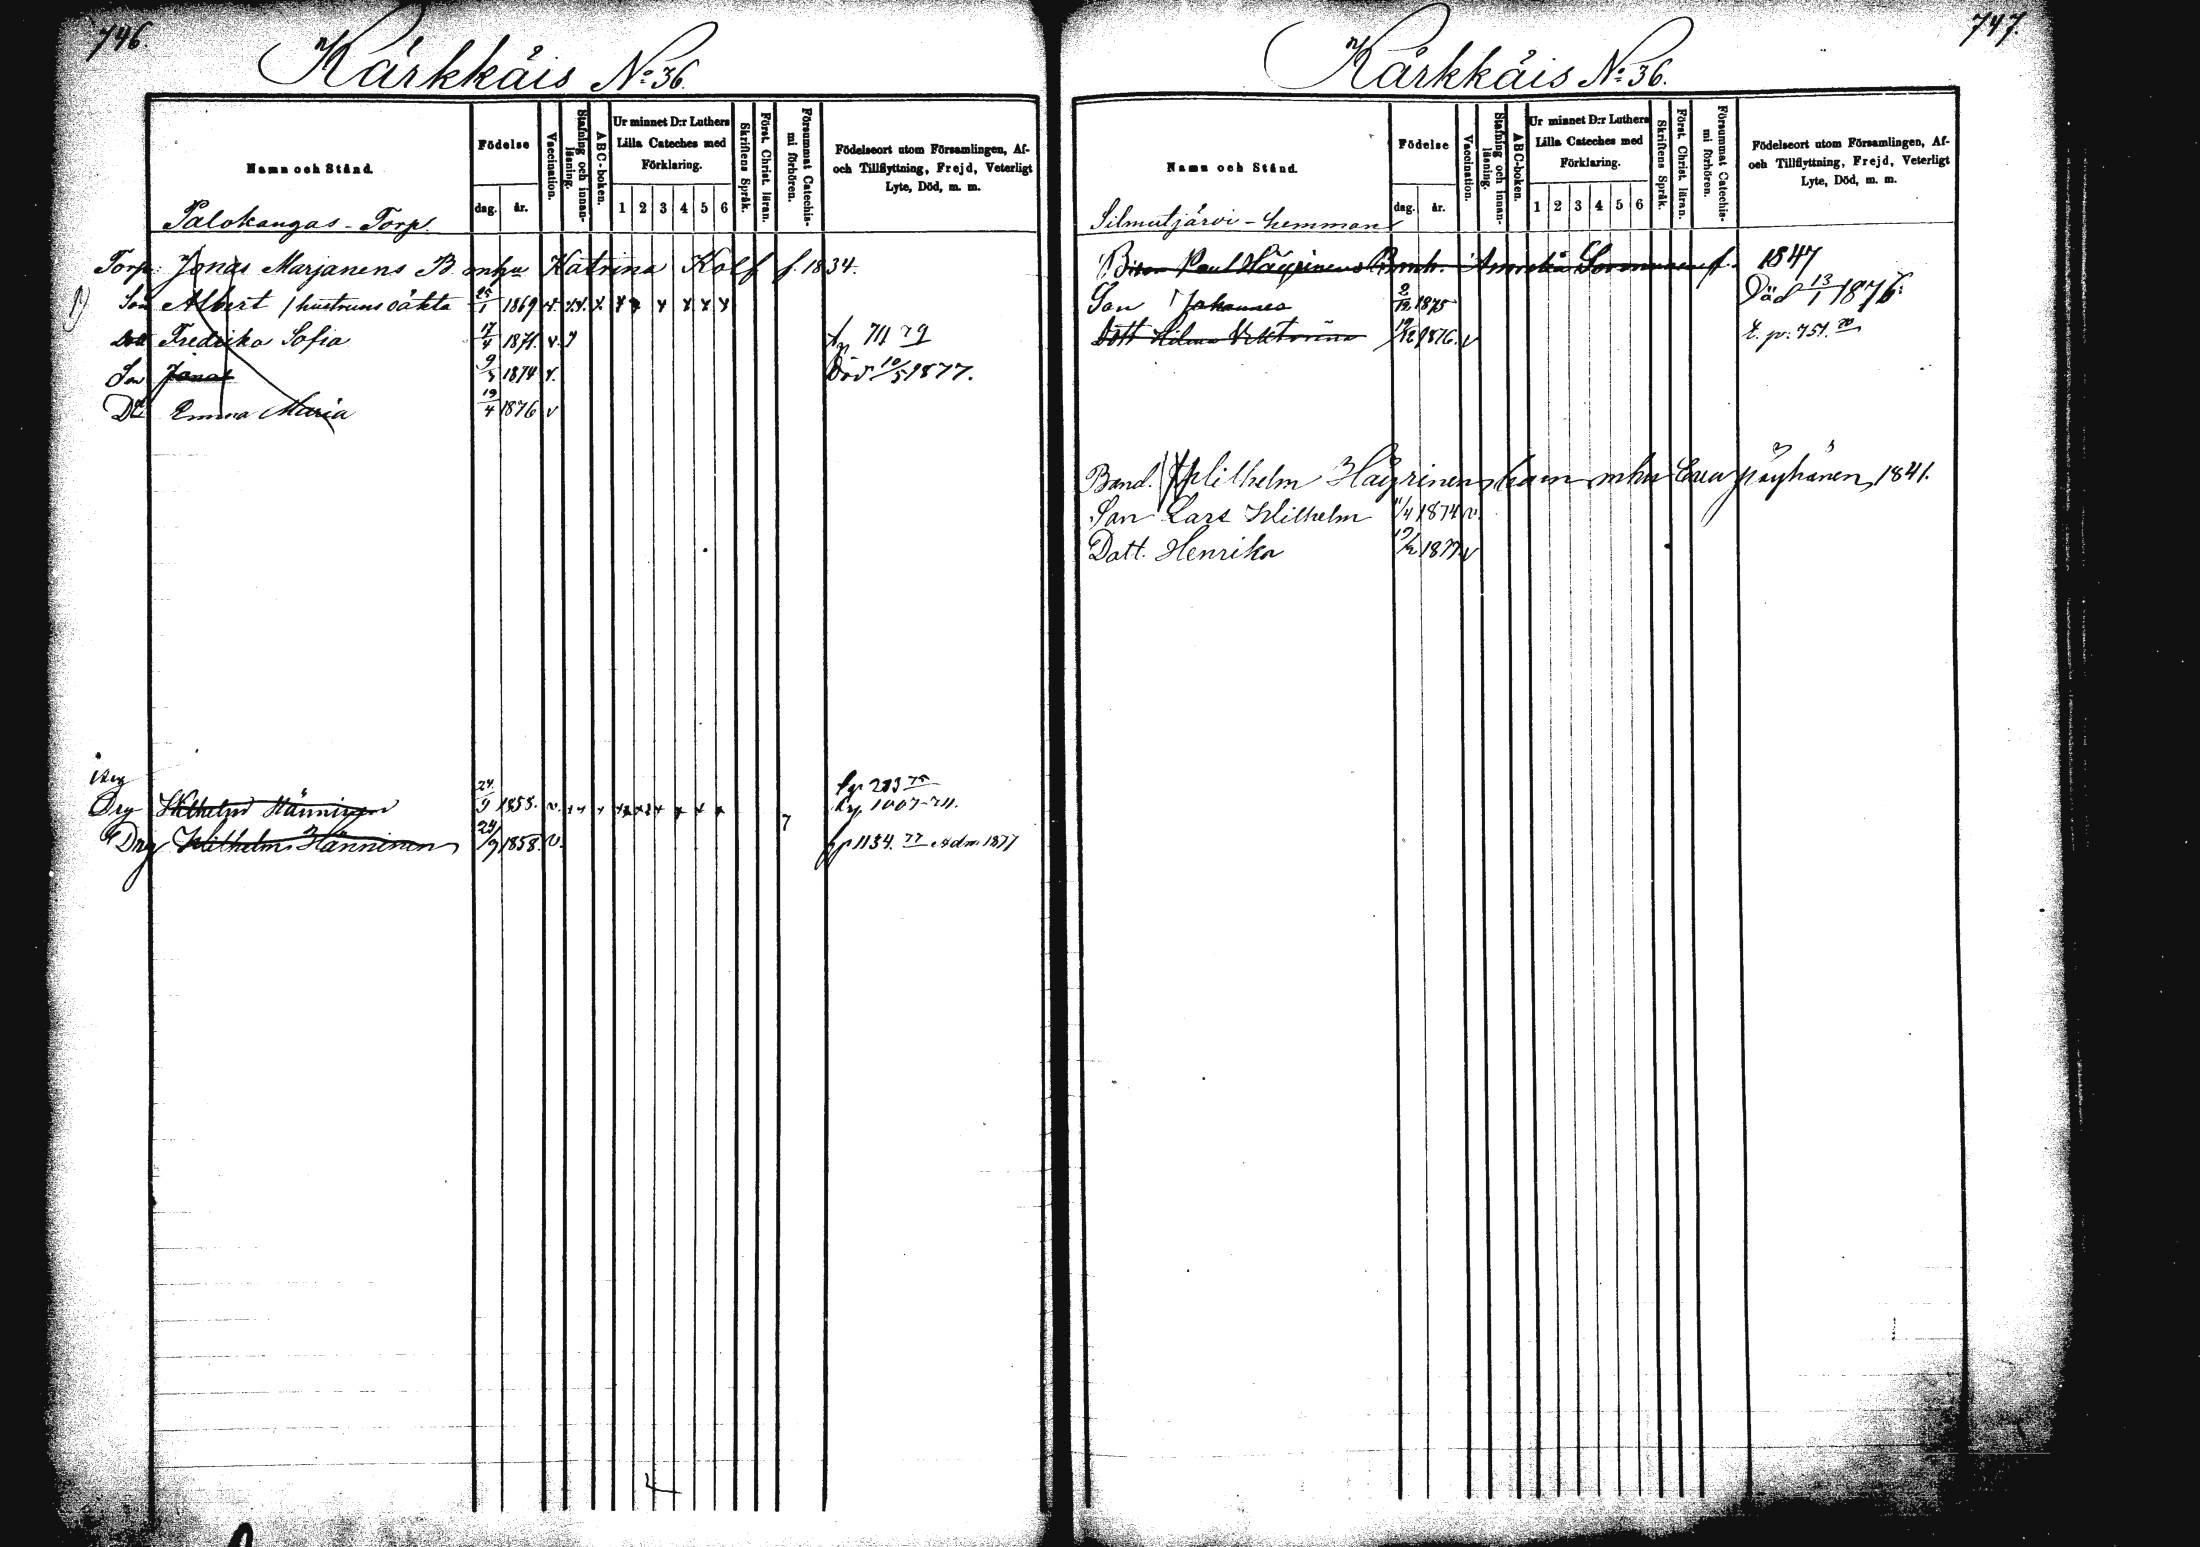 746.
Kärkkäis No 36.
Namn och Stånd.
Födelse
dag. år.
Vaccination.
Stafning och innanläsning.
ABC-boken.
Ur minnet D:r Luthers
Lilla Cateches med
Förklaring.
1 2 3 4 5 6
Skriftens Språk.
Först. Christ. läran.
Försummat Catechismi förhören.
Födelseort utom Församlingen, Af-
och Tillflyttning, Frejd, Veterligt
Lyte, Död, m. m.
Palokangas - Torp.
Torp: Jonas Marjanens B mhu Katrina Kolf f. 1834.
Son Albert / hustruns oäkta 25/1 1869 v.
Dott Fredrika Sofia 17/4 1871. v. 711 79
Son Jonas 1874 v. Död 10/5 1877.
Dott Emma Maria 19/4 1876 v
Drg Wilhelm Hänninen 24/9 1858. v.
Drg Wilhelm Hänninen 24/9 1858. v. p 1134. 77 Adm 1877
747.
Kärkkäis No 36.
Namn och Stånd.
Födelse
dag. år.
Vaccination.
Stafning och innanläsning.
ABC-boken.
Ur minnet D:r Luthers
Lilla Cateches med
Förklaring.
1 2 3 4 5 6
Skriftens Språk.
Först. Christ. läran.
Försummat Catechismi förhören.
Födelseort utom Församlingen, Af-
och Tillflyttning, Frejd, Veterligt
Lyte, Död, m. m.
Silmutjärvi - hemman
Paul Häyrinens 1847
Son Johannes 2/12 1875 Död 13/1 1876.
Dott Hilma 1876. v p. 751. 80
Band. Wilhelm Häyrinens mhu Eva Pöyhönen, 1841.
Son Lars Wilhelm 1874 v.
Dott. Henrika 1877 v